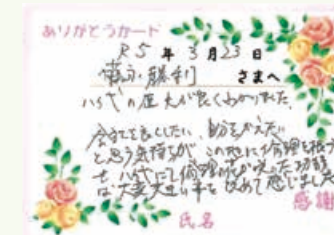 ありがとうカード
R5年3月23日
藤永勝利 さまへ
八代の偉大が良くわかりました。
会社を良くしたい、自分を変えたい
と思う気持ちが、この地に倫理を根づか
せ、八代にて倫理の花が咲いた功績
は大変大きい事を改めて感じました
感謝
氏名